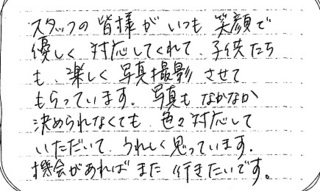 スタッフの皆様がいつも笑顔で
優しく対応してくれて、子供たち
も、楽しく写真撮影させて
もらっています。写真もなかなか
決められなくても、色々対応して
いただいて、うれしく思っています。
機会があればまた行きたいです。